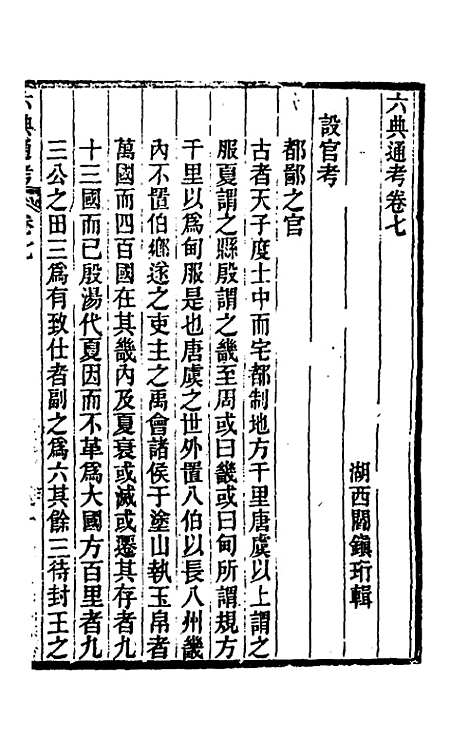 六典通考卷七
湖西閻鎮珩輯
設官考
都鄙之官
古者天子度土中而宅都制地方千里唐虞以上謂之
服夏謂之縣殷謂之畿至周或曰畿或曰甸所謂規方
千里以爲甸服是也唐虞之世外置八伯以長八州畿
內不置伯鄉遂之吏主之禹會諸侯于塗山執玉帛者
萬國而四百國在其畿內及夏衰或滅或遷其存者九
十三國而已殷湯代夏因而不革爲大國方百里者九
三公之田三爲有致仕者副之爲六其餘三待封王之
六典通考 卷七